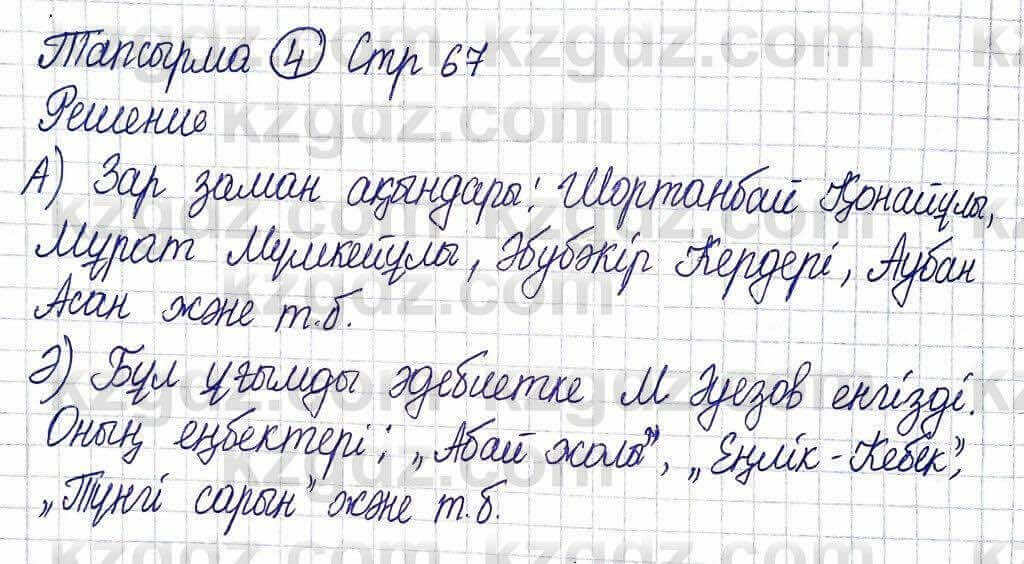 Тапсырма 4 Стр 67
Решение
А) Зар заман ақындары: Шортанбай Қонайұлы,
Мұрат Мүшкейұлы, Әбубәкір Кердері, Аубан
Асан және т.б.
Ә) Бұл ұғымды әдебиетке М Әуезов енгізді.
Оның еңбектері; „Абай жолы", „Еңлік-Кебек",
„Түнгі сарын" және т.б.
kzgdz.com